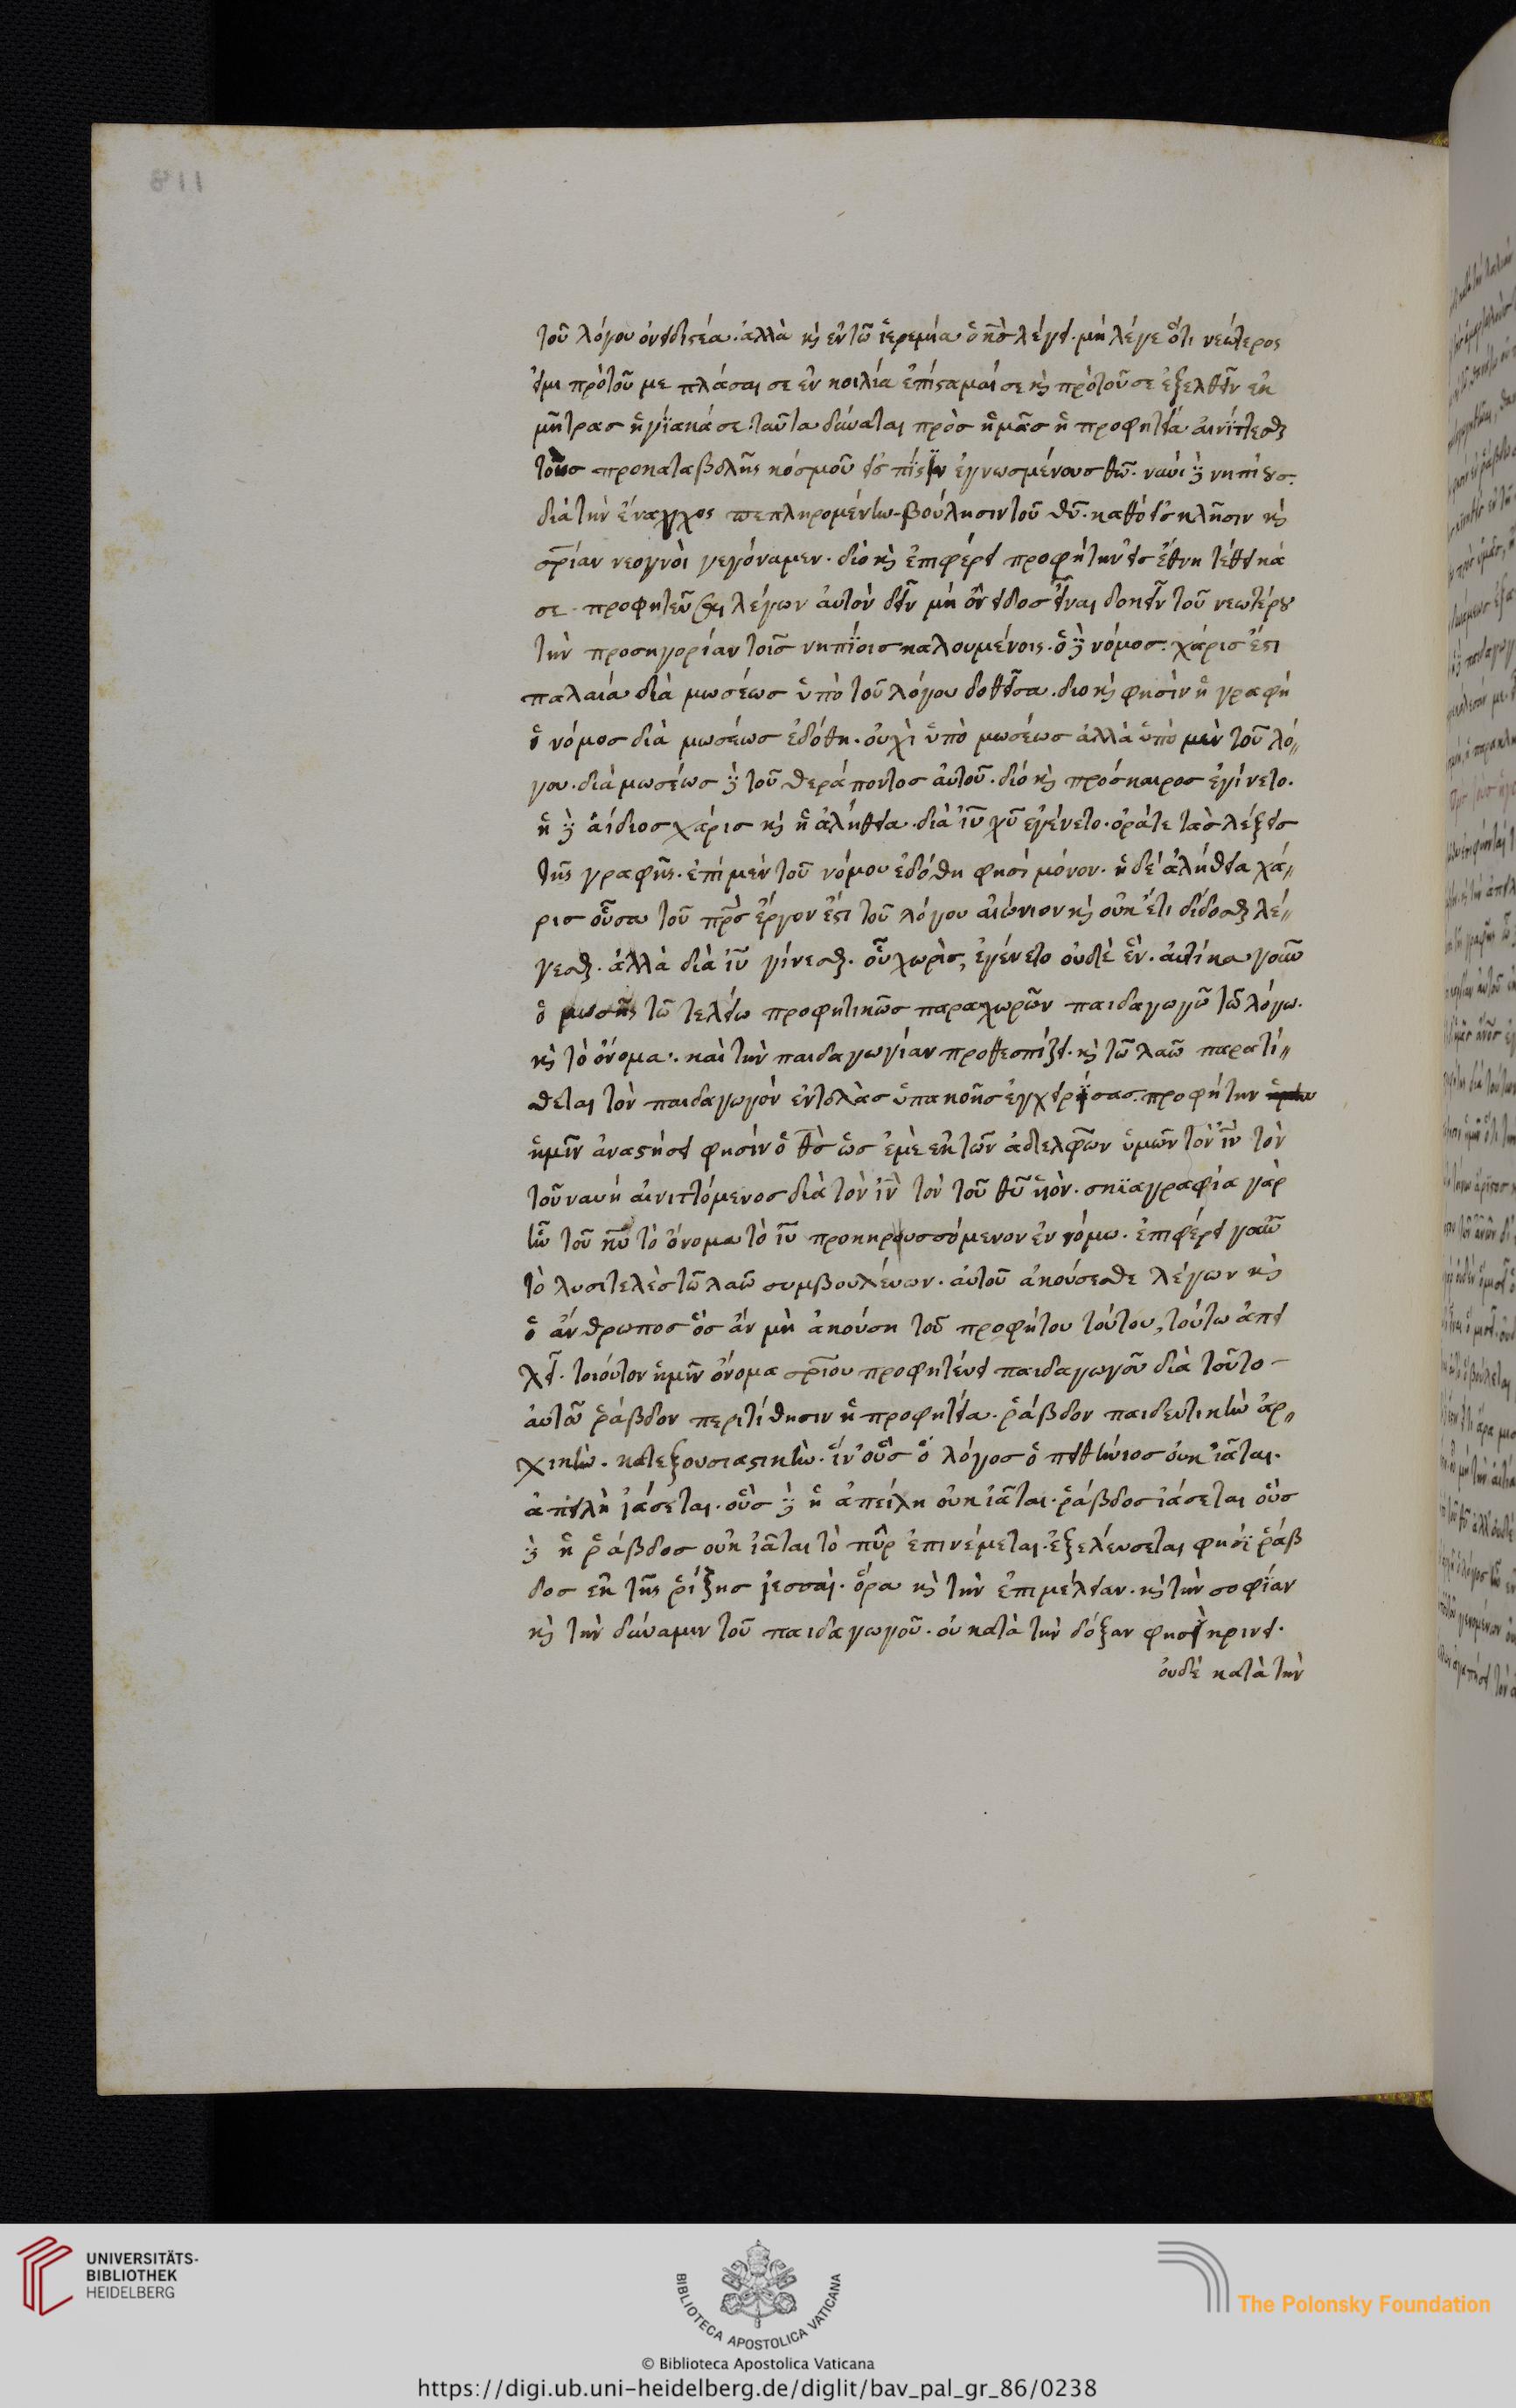 811
τοῦ λόγου ὀνειδιστέα. ἀλλὰ κὶ ἐν τῶ ἱερεμία ὁ κ̅σ̅ λέγει. μὴ λέγε ὅτι νεώτερος
εἰμι πρὸτοῦ με πλάσαι σε ἐν κοιλία ἐπίσταμαί σε κὶ πρὸτοῦ σε ἐξελθεῖν ἐκ
μήτρας ἡγίακά σε. ταῦτα δύναται πρὸσ ἡμᾶσ ἡ προφητεία αἰνίττεσθαι
τοὺσ προκαταβολῆς κόσμου εἰσ πίστιν ἐγνωσμένουσ θῶ. νυνὶ δὲ νηπίουσ.
διὰ τὴν ἔναγχος πεπληρομένην βούλησιν τοῦ θ̅υ̅. καθὸ εἰσ κλῆσιν κὶ
σ̅ρ̅ίαν νεογνοὶ γεγόναμεν. διὸ κὶ ἐπιφέρει προφήτην εἰσ ἔθνη τέθεικά
σε. προφητεῦσαι λέγων αὐτὸν δεῖν μὴ ὄνειδοσ εἶναι δοκεῖν τοῦ νεωτέρου
τὴν προσηγορίαν τοῖσ νηπίοισ καλουμένοις. ὁ δὲ νόμοσ. χάρισ ἐστι
παλαιά διὰ μωσέωσ ὑπὸ τοῦ λόγου δοθεῖσα. διο κὶ φησὶν ἡ γραφή
ὁ νόμοσ διὰ μωσέωσ ἐδόθη. οὐχὶ ὑπὸ μωσέωσ ἀλλὰ ὑπὸ μὲν τοῦ λό〃
γου. διὰ μωσέωσ δὲ τοῦ θεράποντοσ αὐτοῦ. διὸ κὶ πρόσκαιροσ ἐγίνετο.
ἡ δὲ ἀίδιοσ χάρισ κὶ ἡ ἀλήθεια. διὰ ἰ̅υ̅ χ̅υ̅ ἐγένετο. ὁρᾶτε τὰσ λέξεισ
τῆς γραφῆς. ἐπὶ μὲν τοῦ νόμου ἐδόθη φησὶ μόνον. ἡ δὲ ἀλήθεια χά〃
ρισ οὖσα τοῦ π̅ρ̅σ̅ ἔργον ἐστι τοῦ λόγου αἰώνιον κὶ οὐκ ἔτι δίδοσθαι λέ〃
γεσθαι. ἀλλὰ διὰ ἰ̅υ̅ γίνεσθαι. οὗ χωρὶσ, ἐγένετο οὐδὲ ἓν. αὐτίκα γοῦν
ὁ μωσῆς τῶ τελείω προφητικῶσ παραχωρῶν παιδαγωγῶ τῶ λόγω.
κὶ τὸ ὄνομα. καὶ τὴν παιδαγωγίαν προθεσπίζει. κὶ τῶ λαῶ παρατί〃
θεται τὸν παιδαγωγὸν ἐντολὰσ ὑπακοῆσ ἐγχειρίσασ. προφήτην
ἡμῖν ἀναστήσει φησίν ὁ θ̅σ̅ ὡσ ἐμὲ ἐκ τῶν ἀδελφῶν ὑμῶν τὸν ἰ̅ν̅ τὸν
τοῦ ναυὴ αἰνιττόμενοσ διὰ τὸν ἰ̅ν̅ τὸν τοῦ θ̅υ̅ υἱὸν. σκϊαγραφία γὰρ
ἦν τοῦ κ̅υ̅ τὸ ὄνομα τὸ ἰ̅υ̅ προκηρυσσόμενον ἐν νόμω. ἐπιφέρει γοῦν
τὸ λυσιτελὲσ τῶ λαῶ συμβουλεύων. αὐτοῦ ἀκούσεσθε λέγων κὶ
ὁ ἄνθρωποσ ὃσ ἂν μὴ ἀκούση τοῦ προφήτου τούτου, τούτω ἀπει
λεῖ. τοιόυτον ἡμῖν ὄνομα σ̅ρ̅ίου προφητέυει παιδαγωγοῦ διὰ τοῦτο-
αὐτῶ ῥάβδον περιτίθησιν ἡ προφητεία. ῥάβδον παιδευτικὴν ἀρ〃
χικὴν. κατεξουσιαστικὴν. ἵν' οὓσ ὁ λόγοσ ὁ πειθήνιοσ ὀυκ ἰᾶται.
ἀπειλὴ ἰάσεται. οὓσ δὲ ἡ ἀπείλη οὐκ ἰᾶται. ῥάβδοσ ἰάσεται οὓσ
δὲ ἡ ῥάβδοσ οὐκ ἰᾶται τὸ πῦρ ἐπινέμεται. ἐξελέυσεται φησὶ ῥάβ
δοσ ἐκ τῆς ῥίζησ ἰεσσαί. ὅρα κὶ τὴν ἐπιμέλειαν. κὶ τὴν σοφίαν
κὶ τὴν δύναμιν τοῦ παιδαγωγοῦ. οὐ κατὰ τὴν δόξαν φησὶ κρινεῖ.
ὀυδὲ κατὰ τὴν
UNIVERSITÄTS-
BIBLIOTHEK
HEIDELBERG
BIBLIOTECA APOSTOLICA VATICANA
The Polonsky Foundation
© Biblioteca Apostolica Vaticana
https://digi.ub.uni-heidelberg.de/diglit/bav_pal_gr_86/0238